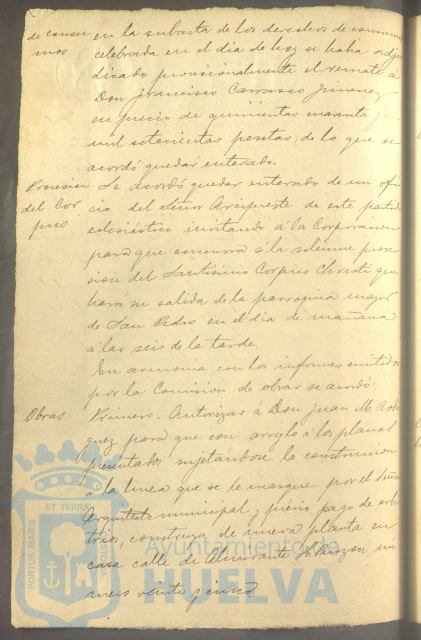 de consu
mos
en la subasta de los derechos de consumos
celebrada en el dia de hoy se habia adju
dicado provisionalmente el remate á
Don Francisco Carrasco Jimenez
en precio de quinientas cuarenta y
mil setecientas pesetas, de lo que se
acordó quedar enterado.
Procesion
del Cor
pus
Se acordó quedar enterado de un ofi
cio del Señor Arcipreste de este partido
eclesiástico invitando á la Corporacion
para que concurra á la solemne proce
sion del Santisimo Corpus Christi que
hará su salida de la parroquia mayor
de San Pedro en el dia de mañana
á las seis de la tarde.
En armonia con los informes emitidos
por la Comision de obras se acordó:
Obras
Primero. Autorizar á Don Juan M. Rodri
guez para que con arreglo á los planos
presentados sujetándose la construccion
á la linea que se le marque por el Señor
Arquitecto municipal y prévio pago de arbi
trios, construya de nueva planta en
casa calle de Almirante H. Pinzon nú
mero veinte y cinco
PORTUS MARIS ET TERRAE CUSTODIA
Ayuntamiento de
HUELVA